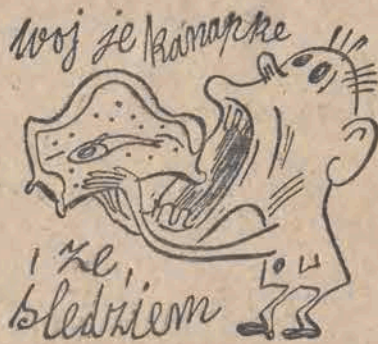 woj je kanapkę
ze
śledziem